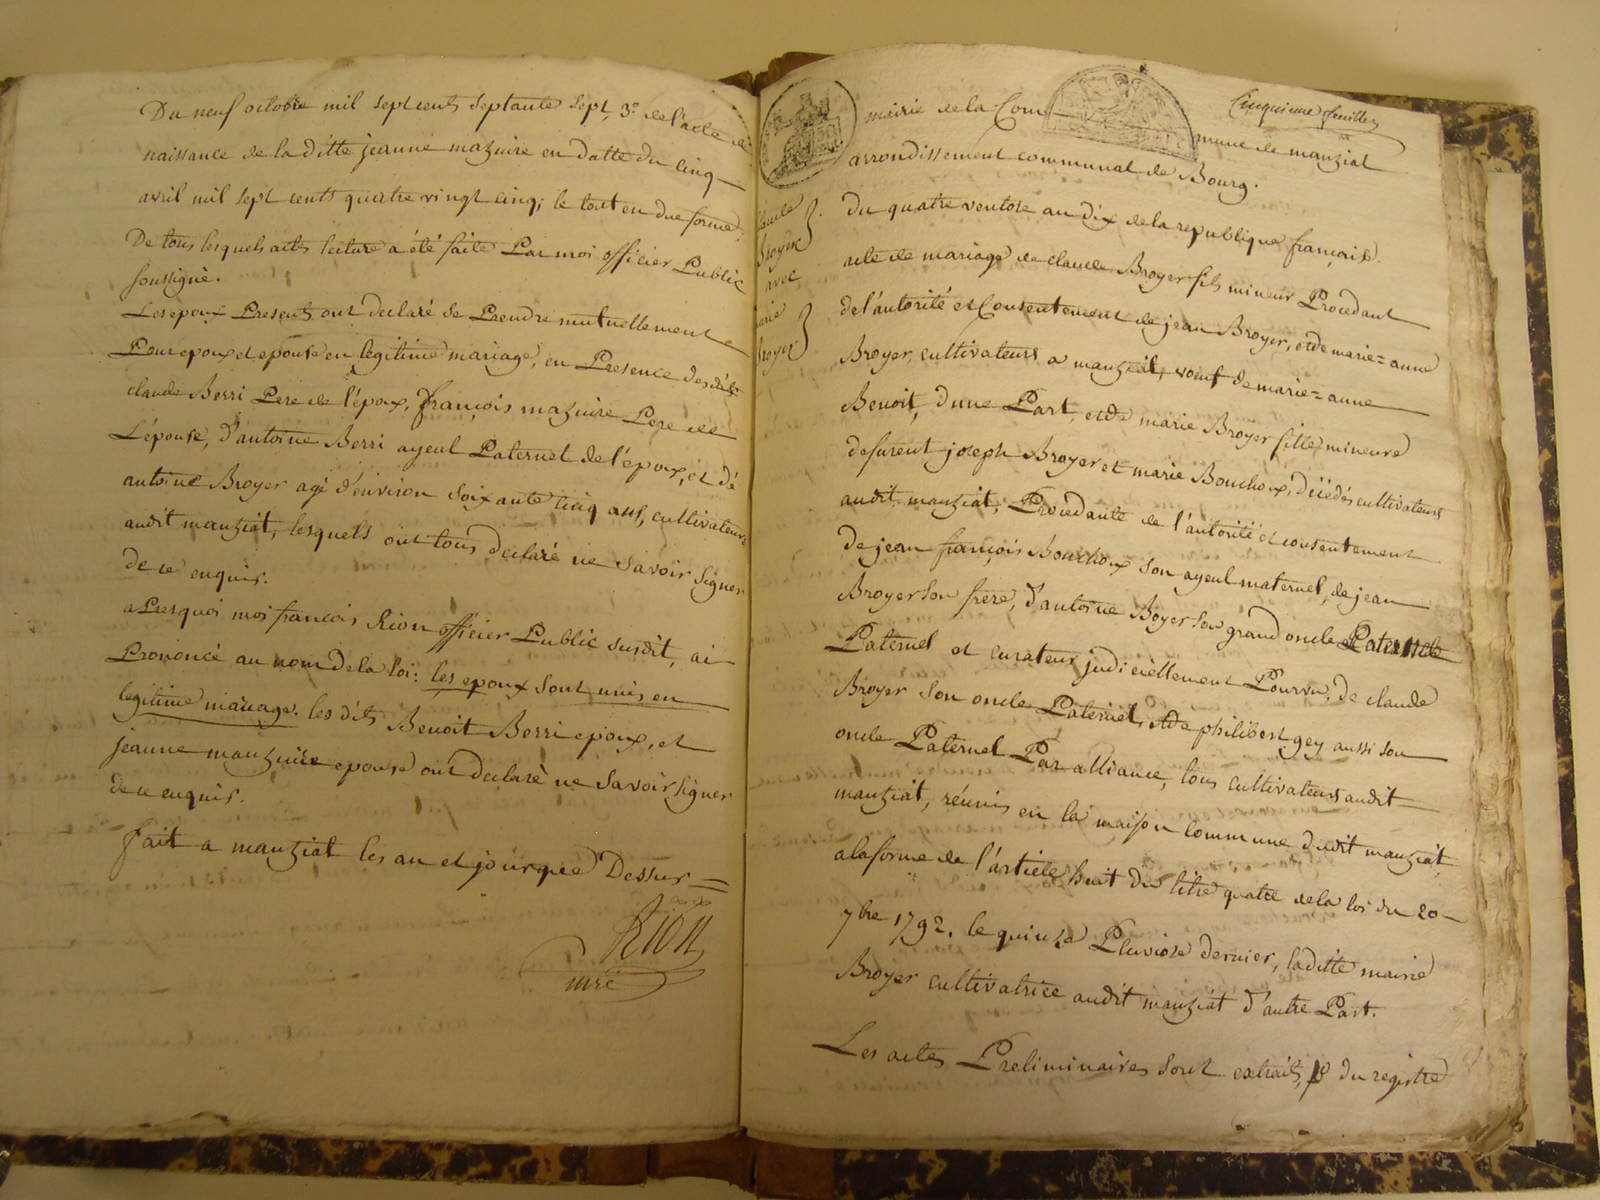 Du neuf octobre mil sept cents septante sept, 3° de l'acte de
naissance de la ditte jeanne mazuire en datte du cinq
avril mil sept cents quatre vingt cinq; le tout en due forme.
De tous lesquels actes lecture a été faite Par moi officier Public
soussigné.
Les epoux Presents ont declaré se Prendre mutuellement
Pour epoux et epouse en legitime mariage, en Presence desdits
claude Berri Pere de l'époux, françois mazuire Pere de
L'épouse, d'antoine Berri ayeul Paternel de l'époux, et dé
antoine Broyer agé d'environ soixante cinq ans, cultivateurs
audit manziat, lesquels ont tous declaré ne savoir signer
de ce enquis.
aPresquoi moi françois Rion officier Public susdit, ai
Prononcé au nom de la loi: les epoux sont unis en
legitime mariage. les dits Benoit Berri epoux, et
jeanne manzuire epouse ont declaré ne savoir signer
de ce enquis.
fait a manziat les an et jour que Dessus =
Rion
mre
Cinquieme feuillet
mairie de la Com mune de manziat
arrondissement communal de Bourg.
claude
Broyer
avec
marie
Broyer
du quatre ventose an dix de la republique française.
acte de mariage de claude Broyer fils mineur Procedant
de l'autorité et Consentement de jean Broyer, et de marie=anne
Broyer, cultivateurs a manziat, veuf de marie=anne
Benoit, d'une Part, et de marie Broyer fille mineure
defurent joseph Broyer et marie Bouchoux, décédés cultivateurs
audit manziat, Procedante de l'autorité et consentement
de jean françois Bouchoux son ayeul maternel, de jean
Broyer son frere, d'antoine Boyer son grand oncle
Paternel et curateur judiciellement Pourvu, de claude
Broyer son oncle Paternel, et de philibert gey aussi son
oncle Paternel Par alliance, tous cultivateurs audit
manziat, réunis en la maison commune dudit manziat,
a la forme de l'article huit du titre quatre de la loi du 20
7bre 1792. le quinze Pluviose dernier, laditte mairie
Broyer cultivatrice audit manziat d'autre Part.
Les actes Preliminaires sont extraits, du registre